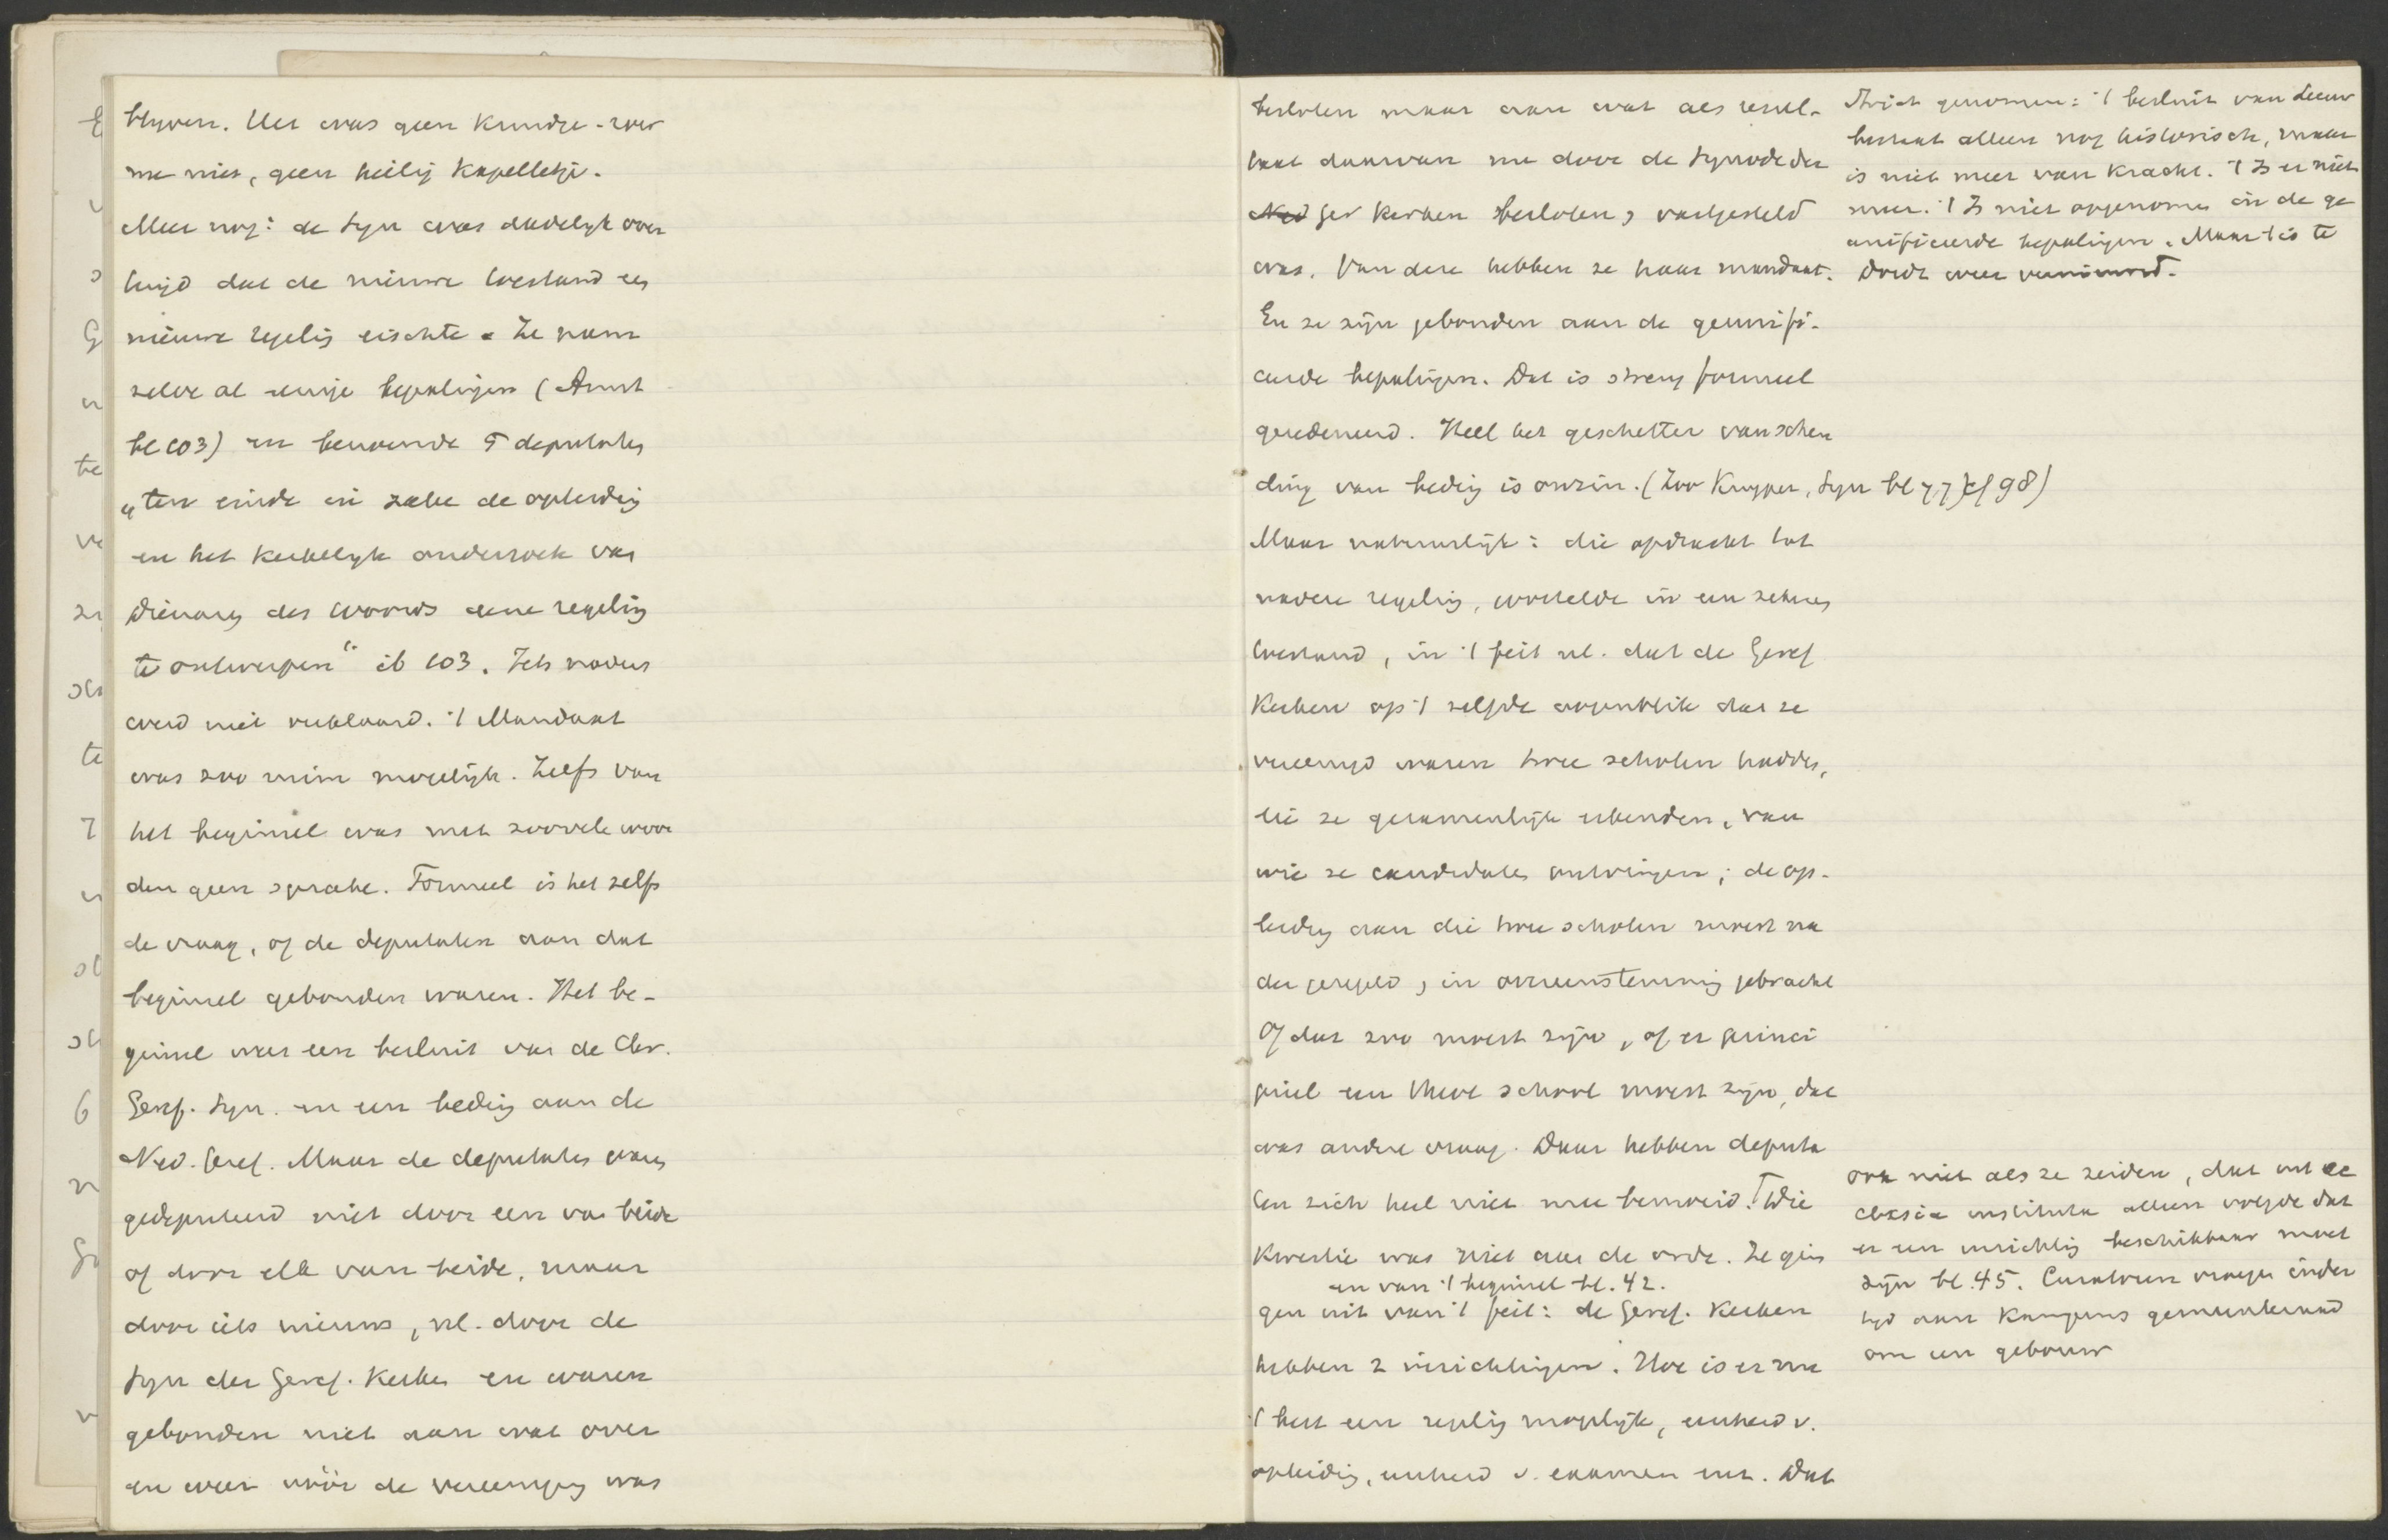 blyven. Het was geen kruidje-roer
me niet, geen heilig kapelletje.
Meer nog: de Syn was dadelyk over
tuigd dat de nieuwe toestand een
nieuwe regelig eischte. Ze nam
zelve al eenige bepalingen (Amst
bl 103) en benoemde 5 deputates
"ten einde in zake de opleidig
en het kerkelyk onderzoek van
Dienaren des Woords eene regelig
te ontwerpen" ib 103. Iets naders
werd niet verklaard. 't Mandaat
was zoo ruim mogelijk. Zelfs van
het beginsel was met zoovele woor
den geen sprake. Formeel is het zelfs
de vraag, of de deputaten aan dat
beginsel gebonden waren. Het be-
ginsel was een besluit van de Chr.
Geref. Syn. en een bedig aan de
Ned. Geref. Maar de deputates waren
gedeputeerd niet door een van beide
of door elk van beide, maar
door iets nieuws, nl. door de
Syn der Geref. Kerken en waren
gebonden niet aan wat over
en weer vóór de vereeniging was
besloten maar aan wat als resul-
taat daarvan nu door de Synode der
Ned Ger Kerken besloten, vastgesteld
was. Van deze hebben ze haar mandaat.
En ze zijn gebonden aan de geunifi-
ceerde bepalingen. Dat is streng formeel
geredeneerd. Heel het geschetter van schen
ding van bedig is onzin. (Zoo Kuyper, Syn bl 77) cf 98)
Maar natuurlijk: die opdracht tot
nadere regelig, wortelde in een zekeren
toestand, in 't feit nl. dat de Geref
Kerken op 't zelfde oogenblik dat ze
vereenigd waren twee scholen hadden,
die ze gezamenlijk erkenden, van
wie ze candidates ontvingen; de op-
leidig aan die twee scholen moest na
der geregeld, in overeenstemmig gebracht
Of dat zoo moest zijn, of er princi
pieel een Theol school moest zijn, dat
was andere vraag. Daar hebben deputa
ten zich heel niet mee bemoeid. Die
kwestie was niet aan de orde. Ze gin
en van 't beginsel bl. 42.
gen uit van 't feit: de Geref. Kerken
hebben 2 inrichtingen. Hoe is er nu
't best een regelig mogelijk, eenheid v.
opleidig, eenheid v. examen enz. Dat
Strict genomen: 't besluit van Leeuw
bestaat alleen nog historisch, maar
is niet meer van kracht. 't Is er niet
meer. 't Is niet opgenomen in de ge
unificeerde bepalingen. Maar 't is te
Dordt weer vernieuwd.
ook niet als ze zeiden, dat uit ec
clesia instituta alleen volgde dat
er een inrichtig beschikbaar moet
zijn bl. 45. Curatoren vragen inder
tyd aan Kampens gemeenteraad
om een gebouw